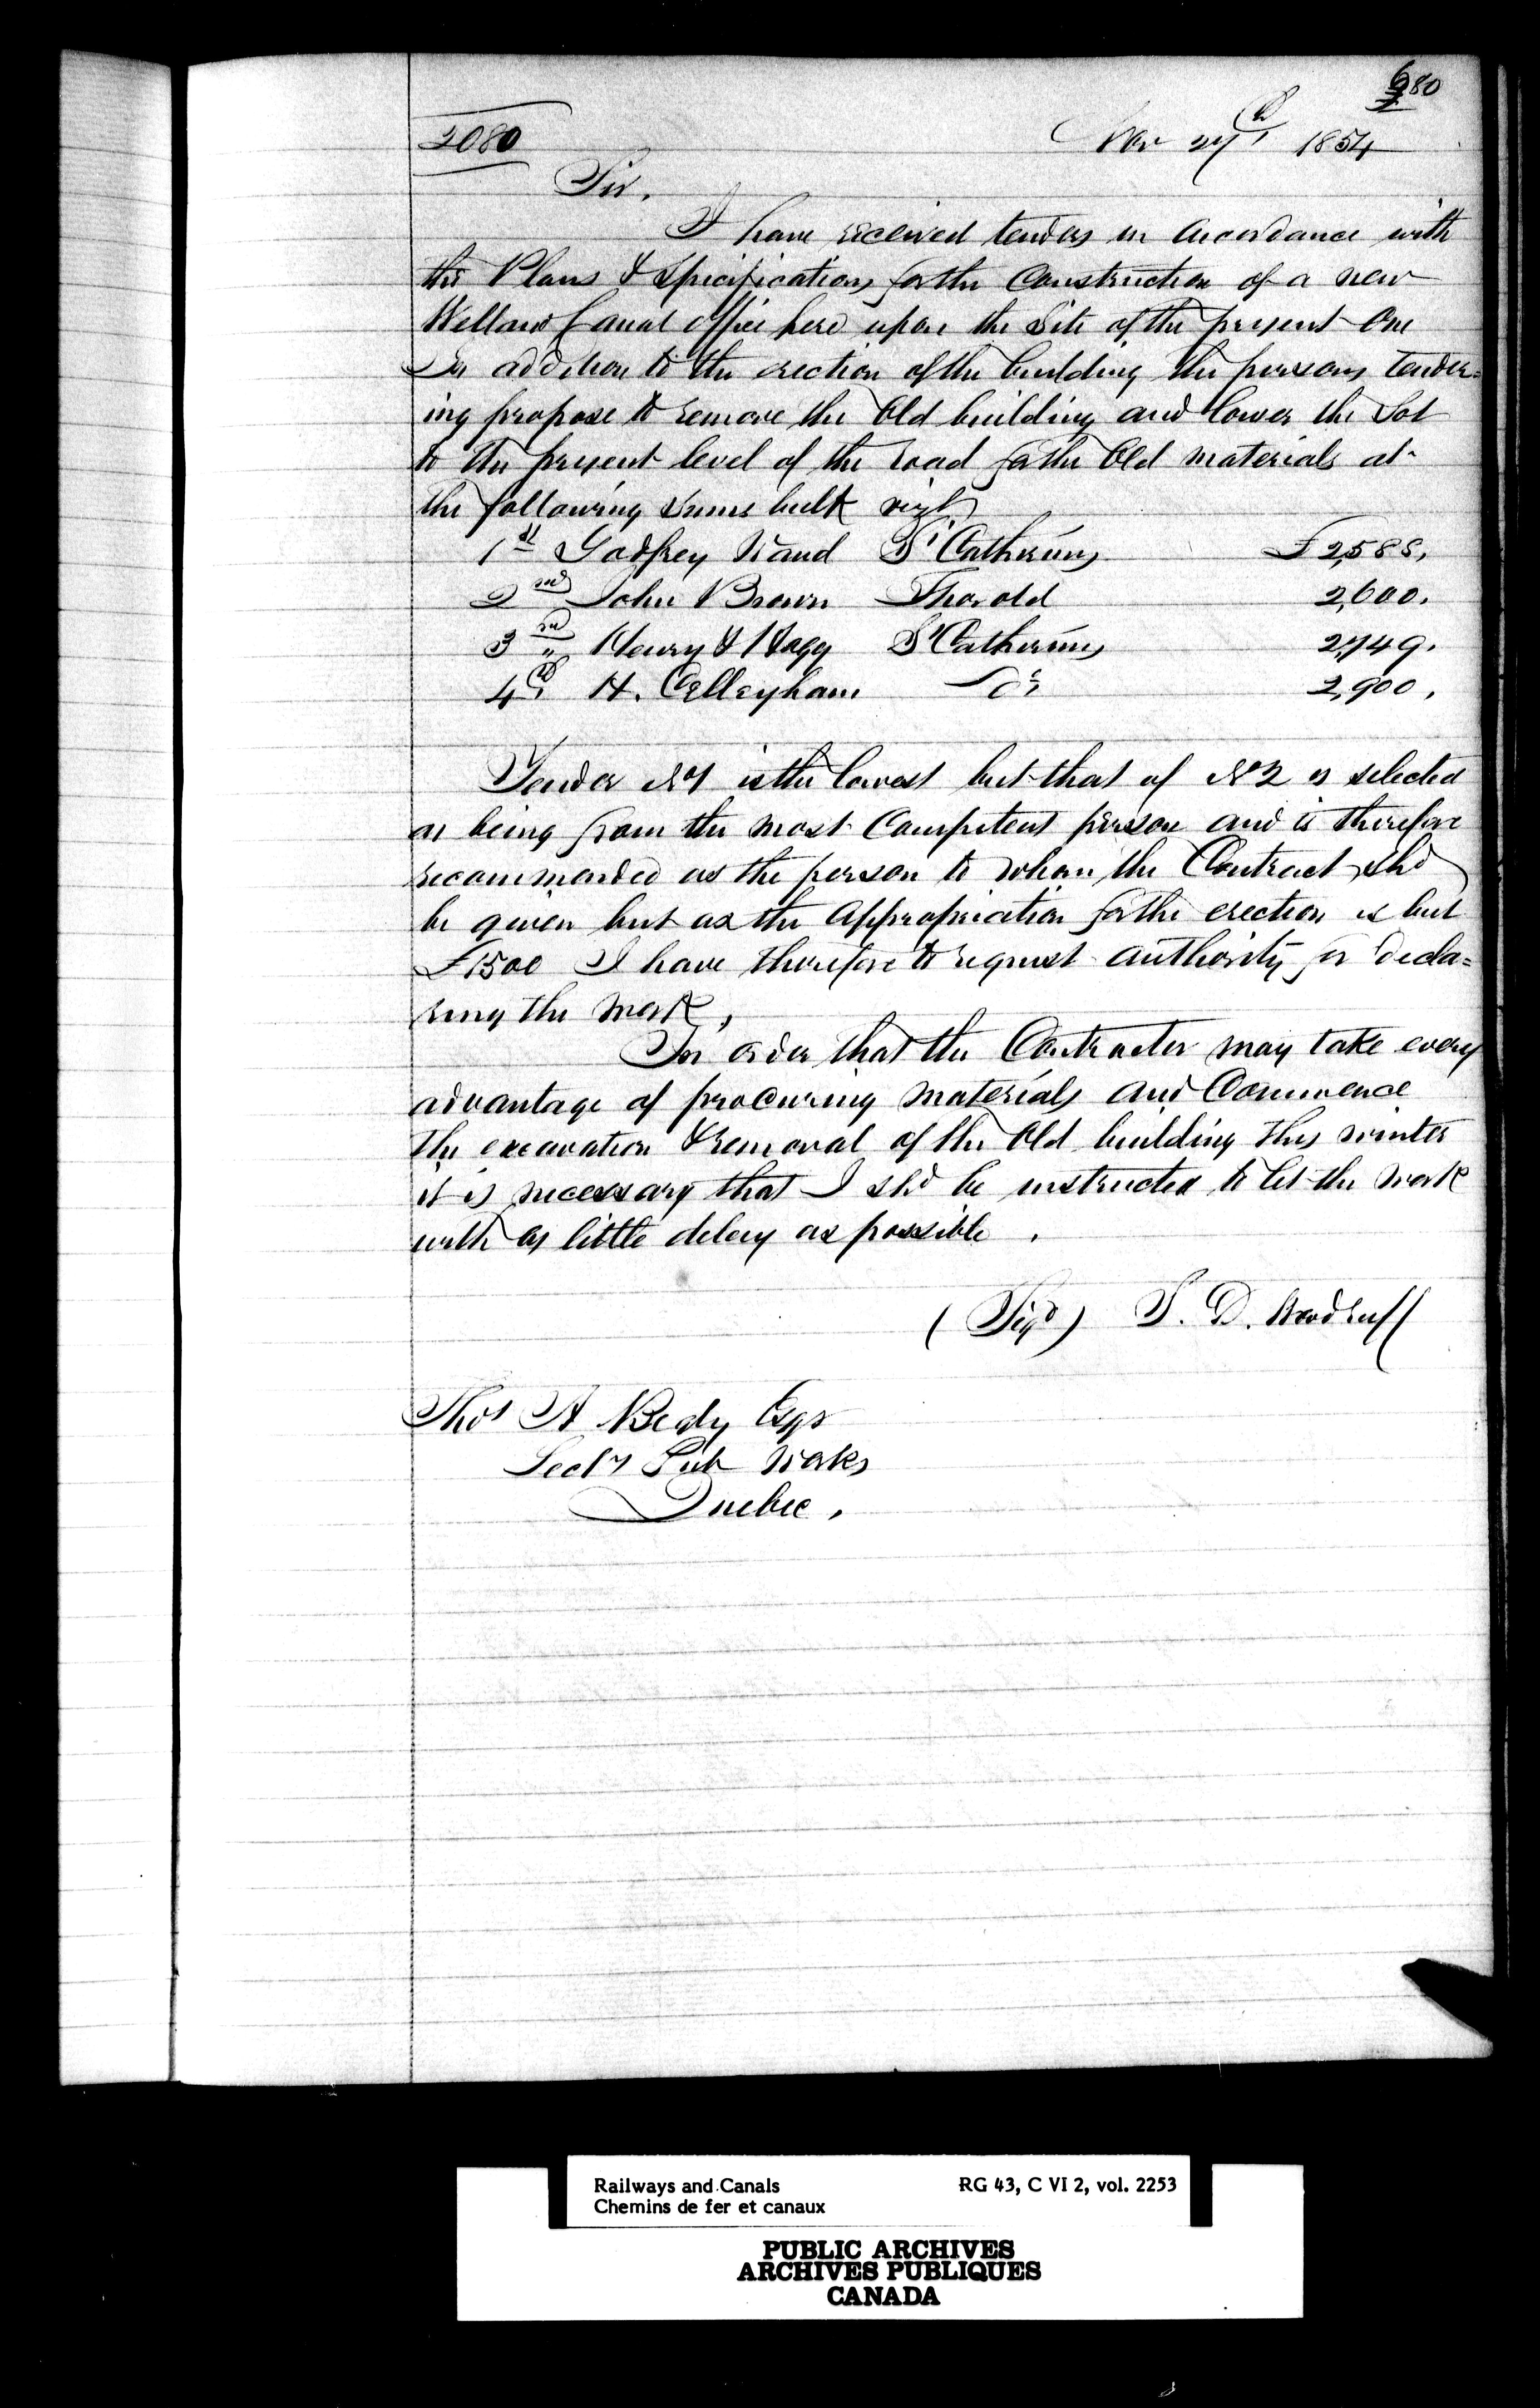 680
2080 Nov 27th, 1854
Sir,
I have received tenders in accordance with
the Plans & Specifications for the Construction of a new
Welland Canal Office here upon the Site of the present One
In addition to the erection of the building the persons tender=
ing propose to remove the Old building and lower the Lot
to the present level of the road for the Old materials at
the following sums bulk vizt
1st Godfrey Waud St Catherines £2,588,
2nd John Brown Thorold 2,600.
3rd " Henry & Hagg St Catherines 2,749.
4th, H. Do 2,900,
Tender No 1 is the lowest but that of No 2 is selected
as being from the most Competent person and is therefore
recommended as the person to whom the Contract shd
be given but as the Appropriation for the erection is but
£1500 I have therefore to request authority for decla=
ring the work,
In order that the Contractor may take every
advantage of procuring materials and Commence
the excavation & removal of the Old building this winter
it is necessary that I shd be instructed to let the work
with as little delay as possible.
(Sigd) S. D. Woodruff
Thos A Begly Esqr
Secty Pub Works
Quebec,
Railways and Canals RG 43, C VI 2, vol. 2253
Chemins de fer et canaux
PUBLIC ARCHIVES
ARCHIVES PUBLIQUES
CANADA